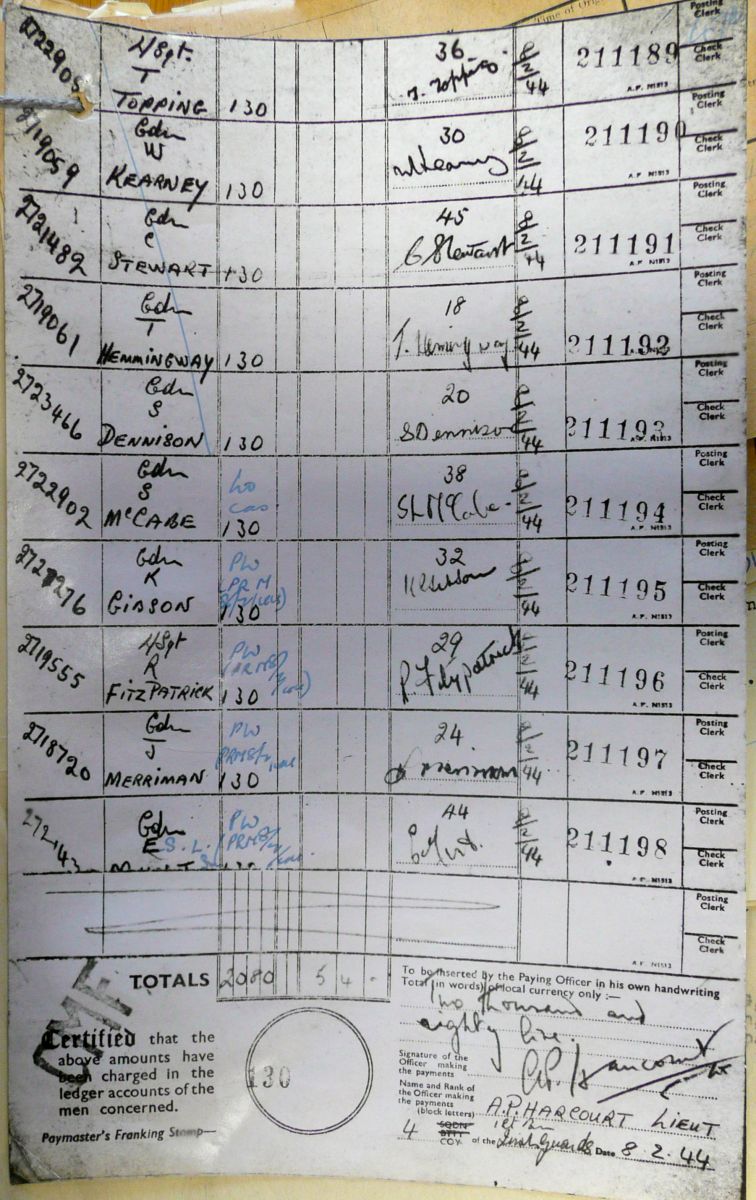 Time of Orig
Posting
Clerk
2722905 L/Sgt. 36 8/2/44 211189 Check
T T. Topping Clerk
TOPPING 130 A.F. N1513
Posting
Clerk
2719059 Gdn 30 8/2/44 211190 Check
W W Kearney Clerk
KEARNEY 130 A.F. N1513
Posting
Clerk
2721482 Gdn 45 8/2/44 211191 Check
C C Stewart Clerk
STEWART 130 A.F. N1513
Posting
Clerk
2719061 Gdn 18 8/2/44 211192 Check
T T. Hemingway Clerk
HEMMINGWAY 130 A.F. N1513
Posting
Clerk
2723466 Gdn 20 8/2/44 211193 Check
S S Dennison Clerk
DENNISON 130 A.F. N1513
Posting
Clerk
2722902 Gdn 38 8/2/44 211194 Check
S cas. Clerk
McCABE 130 A.F. N1513
Posting
Clerk
Gdn PW 32 8/2/44 211195 Check
K Clerk
GIBSON 130 A.F. N1513
Posting
Clerk
2719555 L/Sgt PW 29 8/2/44 211196 Check
R R. Fitzpatrick Clerk
FITZPATRICK 130 A.F. N1513
Posting
Clerk
2718720 Gdn PW 24 8/2/44 211197 Check
J J Merriman Clerk
MERRIMAN 130 A.F. N1513
Posting
Clerk
Gdn PW 44 8/2/44 211198 Check
E S.L. Clerk
130 A.F. N1513
Posting
Clerk
Check
Clerk
A.F. N1513
TOTALS 2080 5 4 -
To be inserted by the Paying Officer in his own handwriting
Total (in words) of local currency only :—
Two thousand and
eighty lire.
CMF
Certified that the
above amounts have
been charged in the
ledger accounts of the
men concerned.
Paymaster's Franking Stamp—
130
Signature of the
Officer making
the payments
A.P. Harcourt Lt
Name and Rank of
the Officer making
the payments
(block letters) A.P. HARCOURT LIEUT
4 SQDN
BTTY
COY. of the 1st Bn
Irish Guards Date 8.2.44